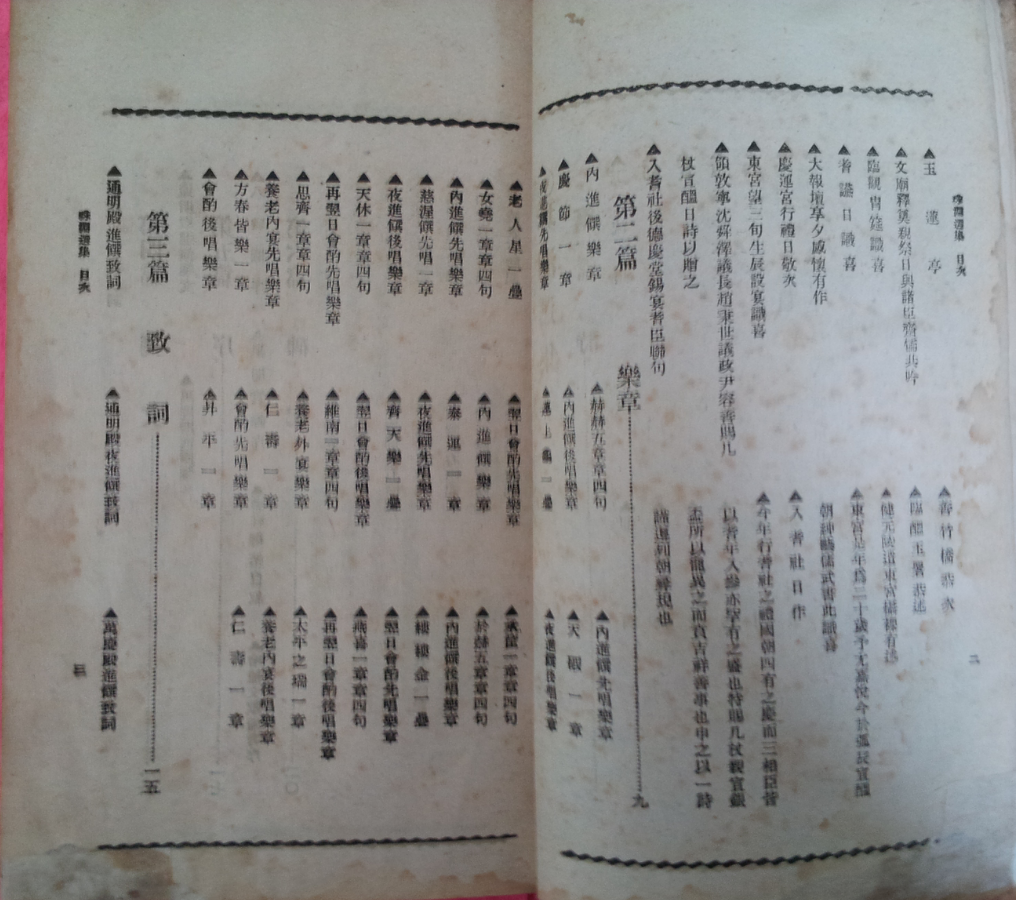 目次
二
▲玉蓮亭
▲善竹橋恭次
▲文廟釋奠親祭日與諸臣齋宿共吟
▲臨醞玉署恭述
▲臨觀胄筵識喜
▲健元陵道東宮
▲耆讌日識喜
▲東宮是年爲三十歲予尤嘉悅今於弧辰宣醞
朝紳暢儒武書此識喜
▲大報壇享夕感懷有作
▲入耆社日作
▲慶運宮行禮日敬次
▲今年行耆社之禮國朝四有之慶而三相臣皆
以耆年入參亦罕有之盛也特賜几杖親宣醞
盃所以寵異之而貢吉祥善事也申之以一詩
謹遵列朝彛規也
▲東宮望三旬生辰設宴識喜
▲領敦寧沈舜澤議長趙秉世議政尹容善賜几
杖宣醞日詩以贈之
▲入耆社後德慶堂錫宴耆臣聯句
第二篇 樂章 九
▲內進饌樂章
▲赫赫五章章四句
▲內進饌先唱樂章
▲慶節一章
▲內進饌後唱樂章
▲天嘏一章
▲夜進饌先唱樂章
▲夜進饌後唱樂章
▲老人星一疊
▲翌日會酌先唱樂章
▲女堯一章章四句
▲內進饌樂章
▲於赫五章章四句
▲內進饌先唱樂章
▲泰運一章
▲內進饌後唱樂章
▲熬渥饌先唱一章
▲夜進饌先唱樂章
▲縷縷金一疊
▲夜進饌後唱樂章
▲齊天樂一疊
▲翌日會酌先唱樂章
▲天休一章章四句
▲翌日會酌後唱樂章
▲燕喜一章章四句
▲再翌日會酌先唱樂章
▲維南一章章四句
▲再翌日會酌後唱樂章
▲思齊一章章四句
▲養老外宴樂章
▲太平之瑞一章
▲養老內宴先唱樂章
▲仁壽一章
▲養老內宴後唱樂章
▲方春皆樂一章
▲會酌先唱樂章
▲仁壽一章
▲會酌後唱樂章
▲昇平一章
第三篇 致詞 一五
▲通明殿進饌致詞
▲通明殿夜進饌致詞
▲萬慶殿進饌致詞
目次
三